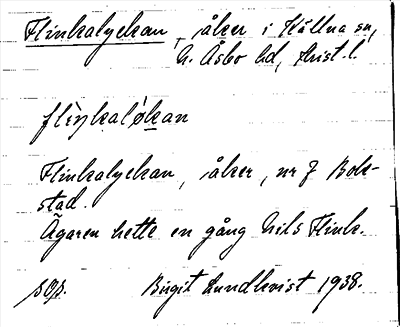 Flinkalyckan, åker i Hållna sn,
N. Åsbo hd, Krist. l.
flìŋkaĺøkan
Flinkalyckan, åker, nr 7 Bok-
stad.
Ägaren hette en gång Nils Flink.
Birgit Lundkvist 1938.